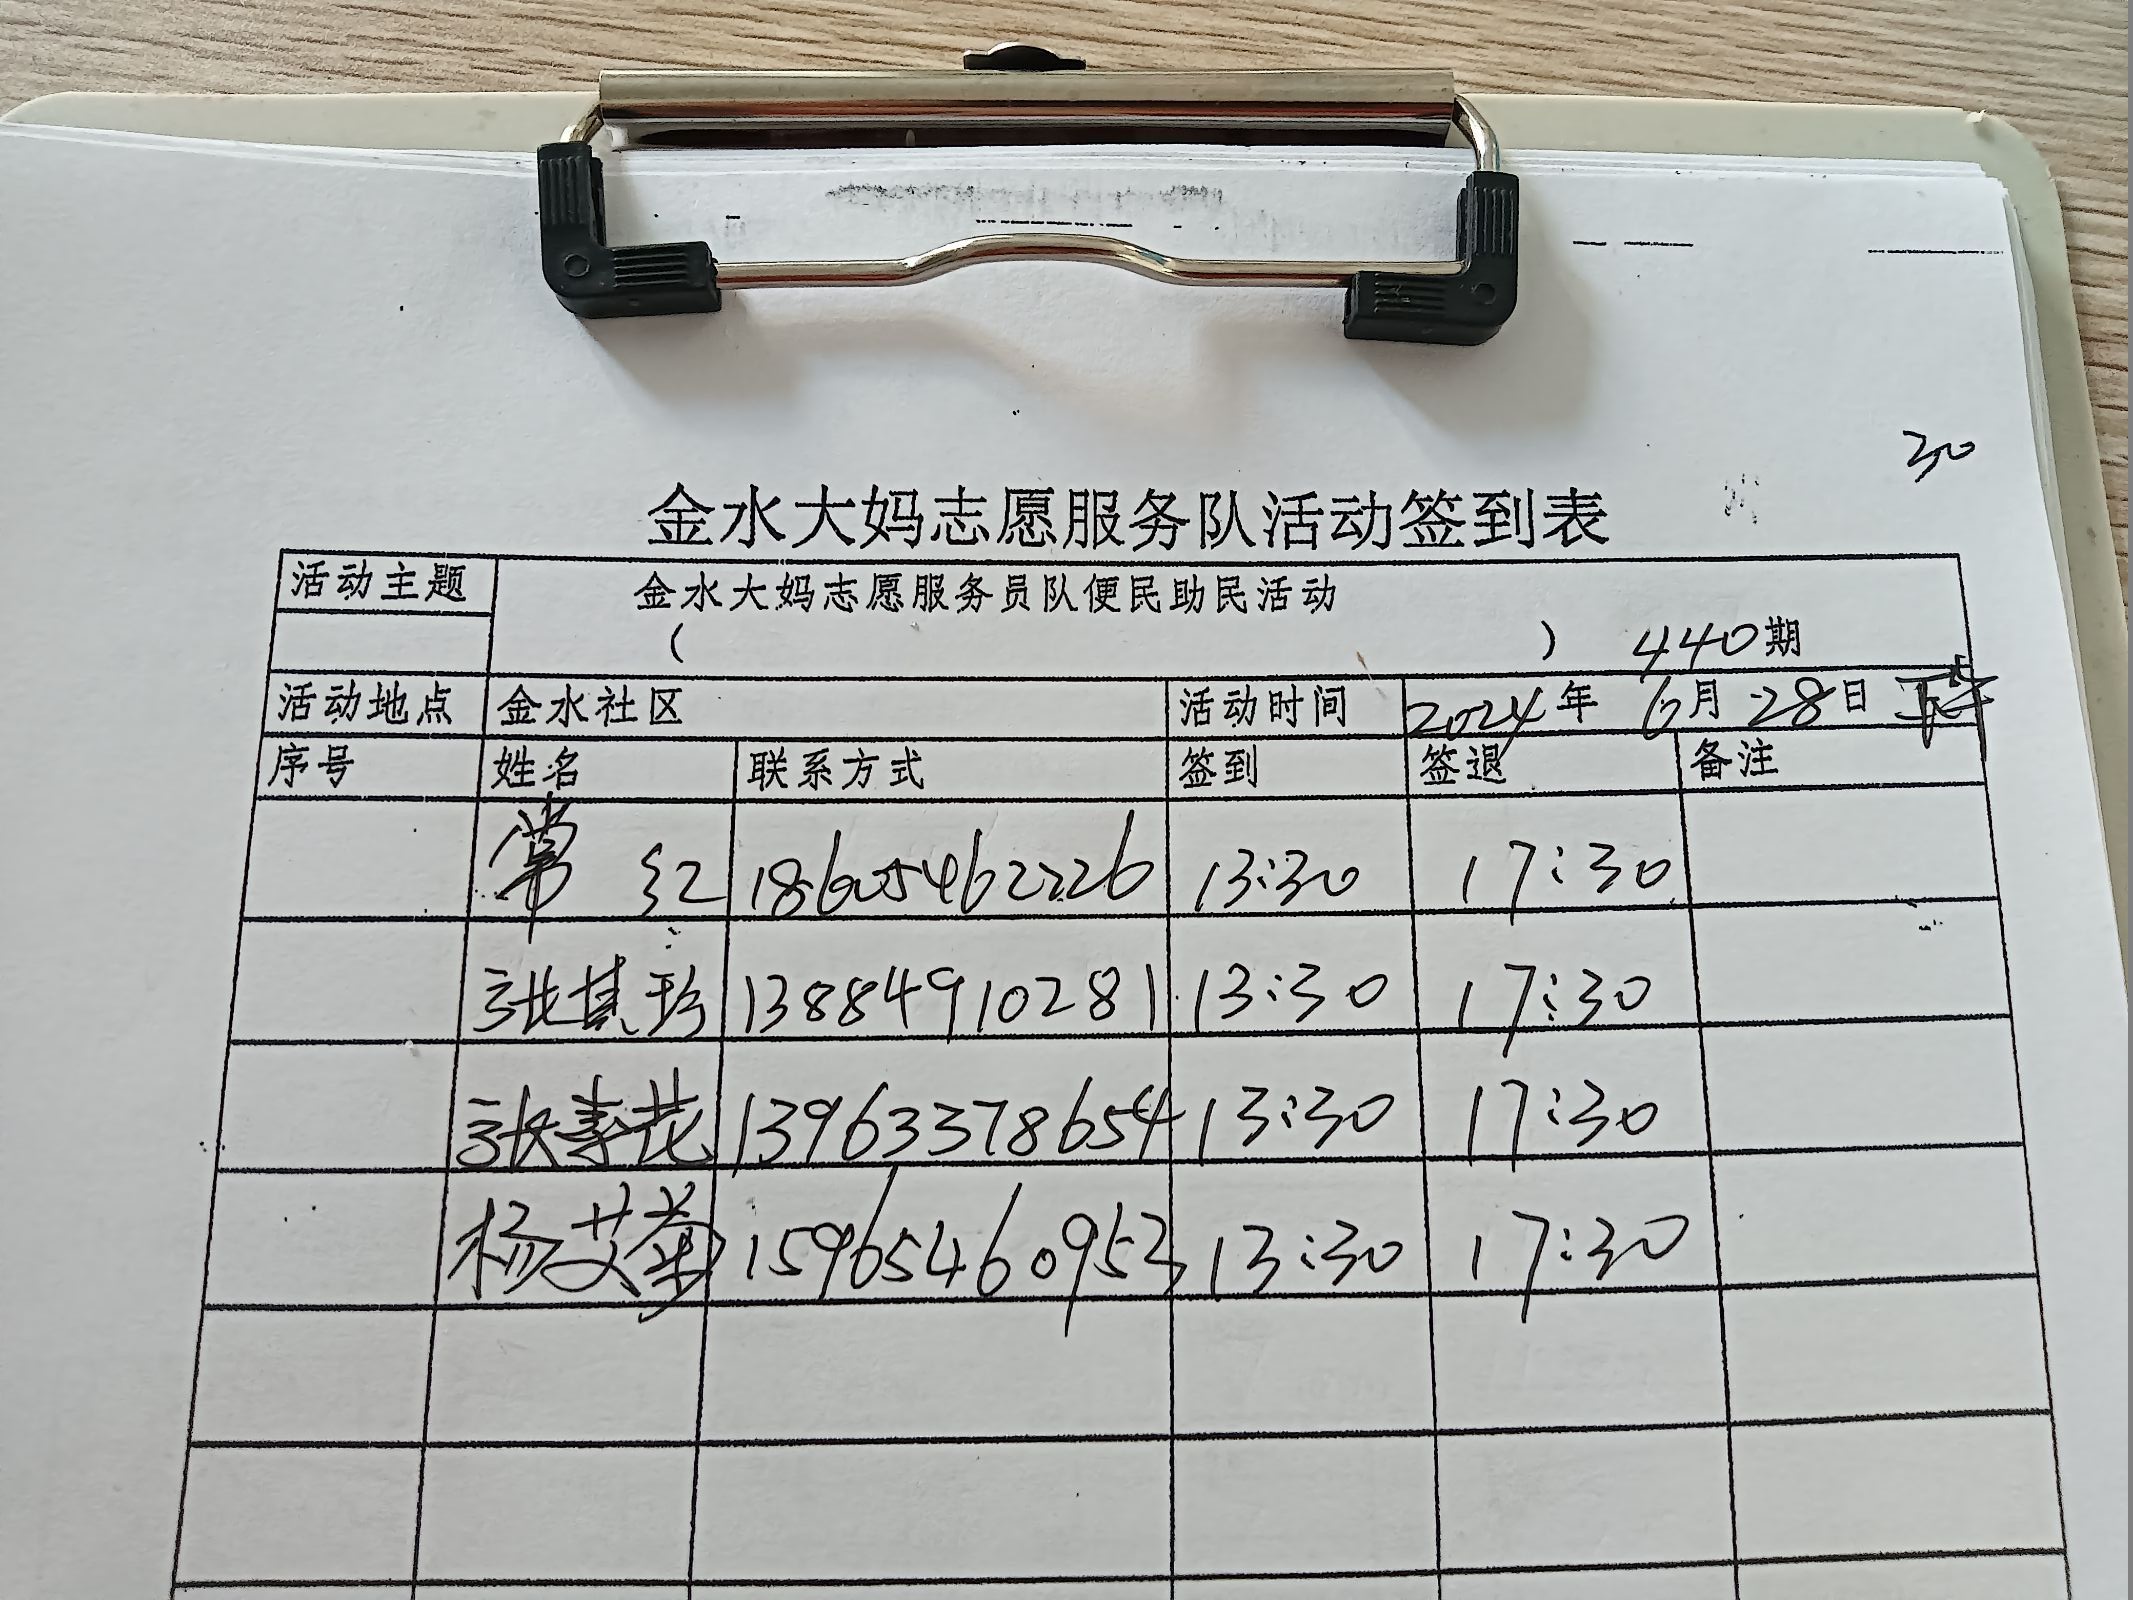 30
金水大妈志愿服务队活动签到表
活动主题 金水大妈志愿服务员队便民助民活动
( ) 440期
活动地点 金水社区 活动时间 2024年 6月 28日
序号 姓名 联系方式 签到 签退 备注
常 红 18605462226 13:30 17:30
张其珍 13884910281 13:30 17:30
张春花 13963378654 13:30 17:30
杨艾菊 15965460953 13:30 17:30